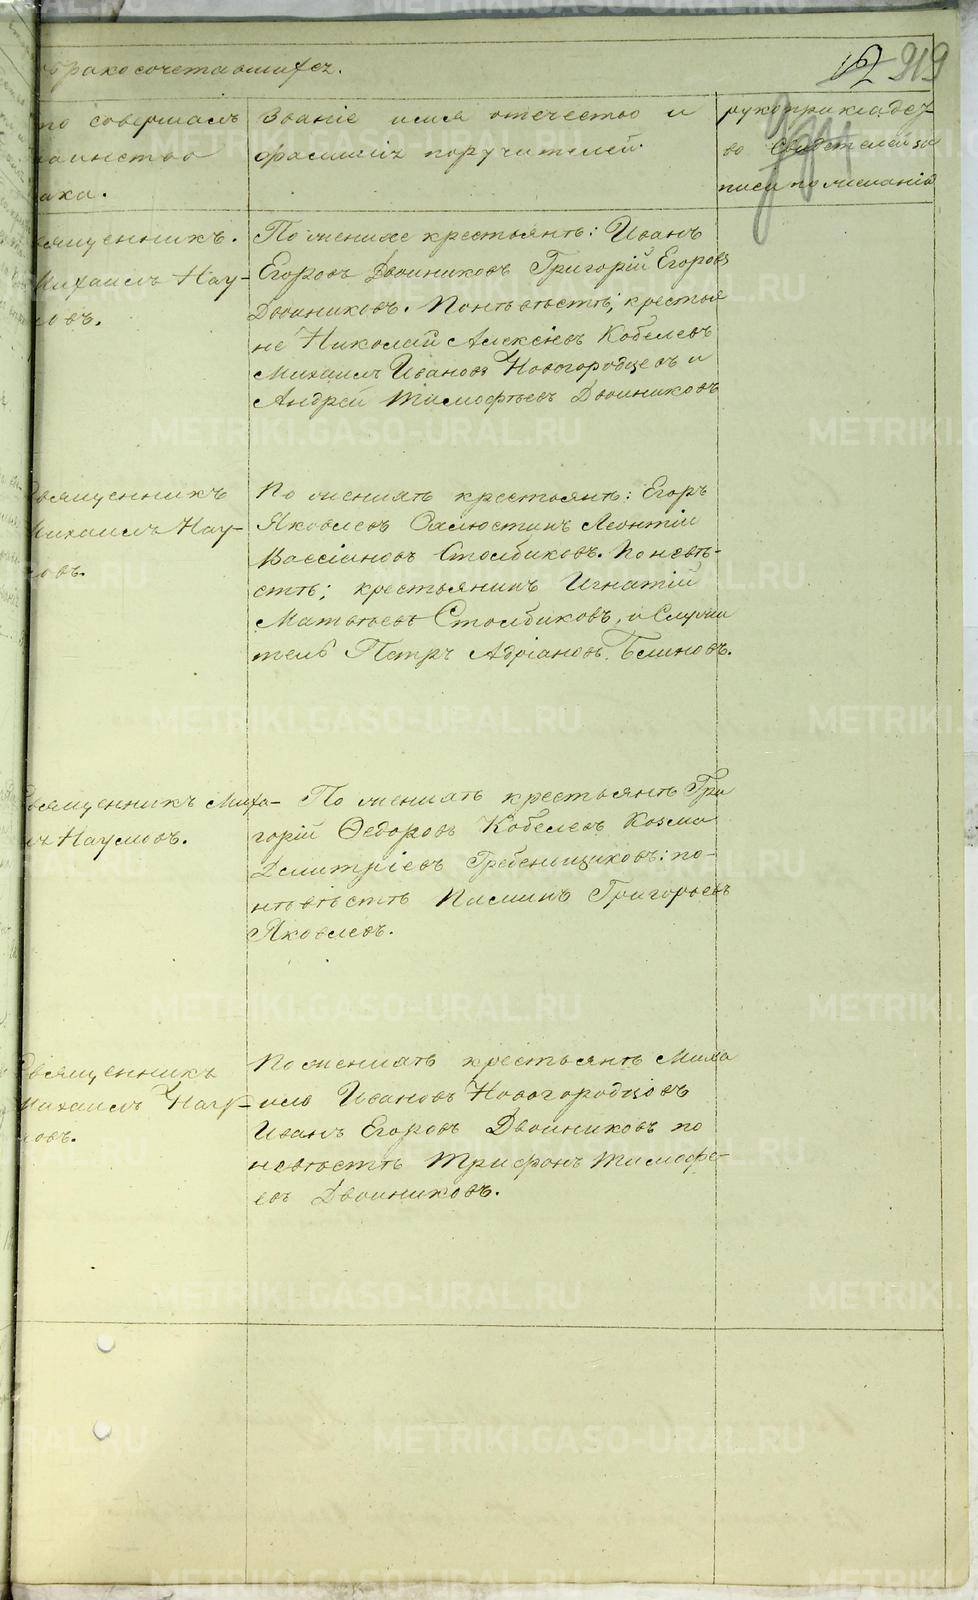 бракосочетавшихся.
919
то совершалъ
таинство
ака.
Званіе имя отечество и
фамилія поручителей.
рукоприкладст-
во свидетелей за
писи по желанію
вященникъ.
Михаилъ Нау-
овъ.
По женихе крестьянѣ: Иванъ
Егоровъ Двойниковъ Григорій Егоровъ
Двойниковъ. По невѣстѣ; крестья
не Николай Алексіевъ Кобелевъ
Михаилъ Ивановъ Новогородцевъ и
Андрей Тимофѣевъ Двойниковъ
Священникъ
Михаилъ Нау-
овъ.
По женихѣ крестьянѣ: Егоръ
Яковлевъ Леонтій
Вассіановъ Столбиковъ. По невѣ-
стѣ; крестьянинъ Игнатій
Матвѣевъ Столбиковъ, и Служи
тель Петръ Адріановъ Блиновъ.
Священникъ Миха-
лъ Наумовъ.
По женихѣ крестьянѣ Гри
горій Ѳедоровъ Кобелевъ Козма
Дмитріевъ Гребенщиковъ: по
невѣстѣ Пименъ Григорьевъ
Яковлевъ.
Священникъ
Михаилъ Наум-
овъ.
По женихѣ крестьянѣ Миха
илъ Ивановъ Новогородцовъ
Иванъ Егоровъ Двойниковъ по
невѣстѣ Трифонъ Тимофе-
евъ Двойниковъ.
METRIKI.GASO-URAL.RU